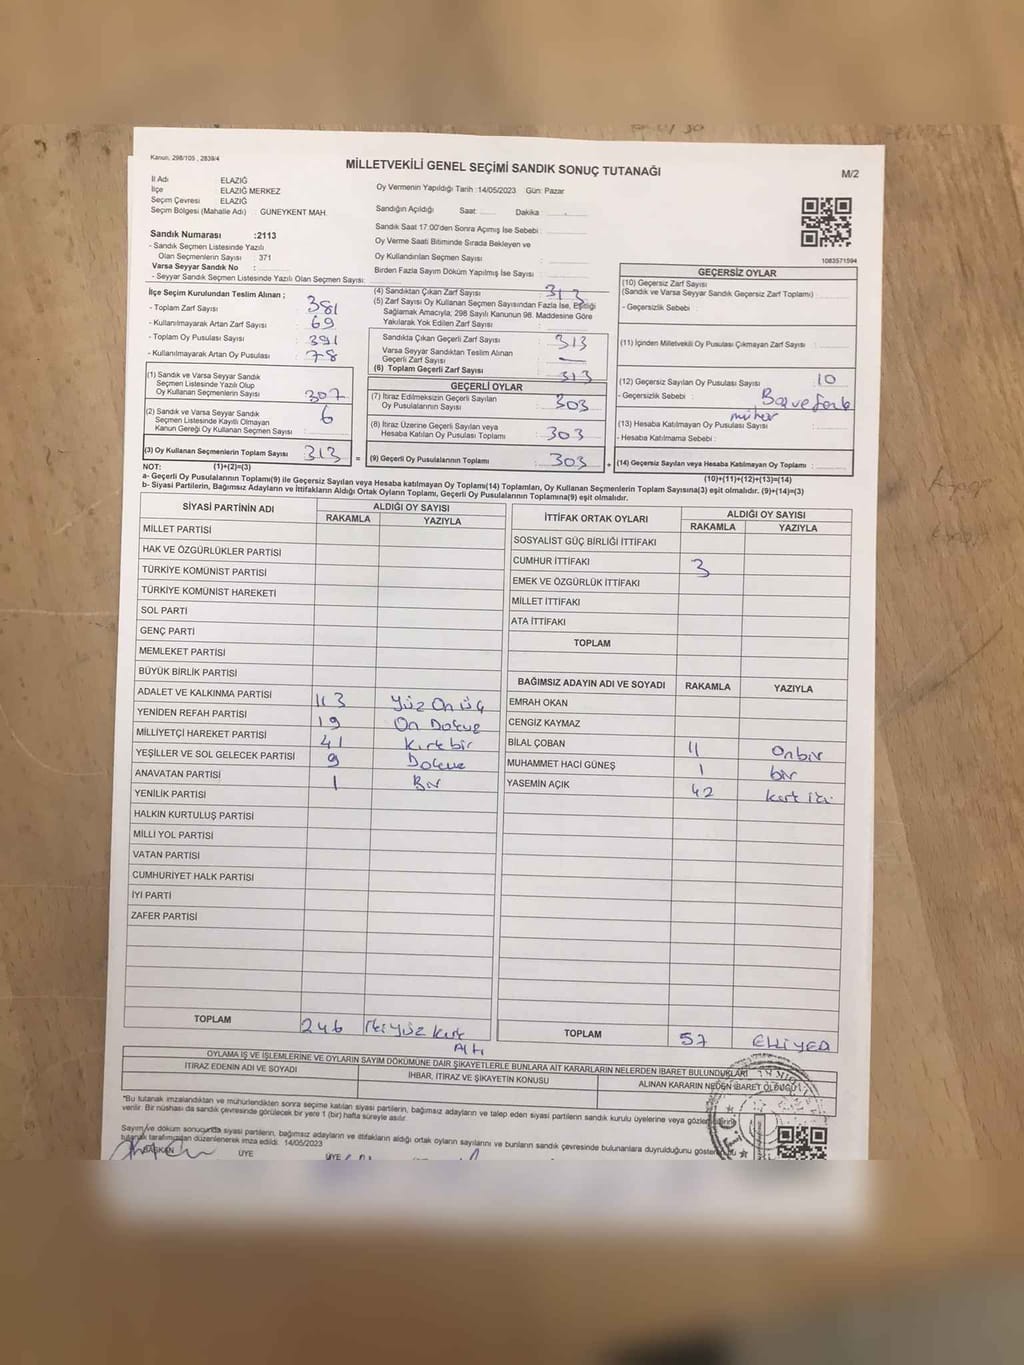 Kanun, 298/105 , 2839/4
MİLLETVEKİLİ GENEL SEÇİMİ SANDIK SONUÇ TUTANAĞI
M/2
İl Adı ELAZIĞ
İlçe ELAZIĞ MERKEZ
Seçim Çevresi ELAZIĞ
Seçim Bölgesi (Mahalle Adı) : GÜNEYKENT MAH.
Sandık Numarası :2113
- Sandık Seçmen Listesinde Yazılı
Olan Seçmenlerin Sayısı : 371
Varsa Seyyar Sandık No :
- Seyyar Sandık Seçmen Listesinde Yazılı Olan Seçmen Sayısı:
Oy Vermenin Yapıldığı Tarih :14/05/2023 Gün: Pazar
Sandığın Açıldığı Saat: Dakika :
Sandık Saat 17:00'den Sonra Açımış İse Sebebi :
Oy Verme Saati Bitiminde Sırada Bekleyen ve
Oy Kullandırılan Seçmen Sayısı :
Birden Fazla Sayım Döküm Yapılmış İse Sayısı :
1083571594
İlçe Seçim Kurulundan Teslim Alınan ;
- Toplam Zarf Sayısı : 381
- Kullanılmayarak Artan Zarf Sayısı : 69
- Toplam Oy Pusulası Sayısı : 391
- Kullanılmayarak Artan Oy Pusulası : 78
(1) Sandık ve Varsa Seyyar Sandık
Seçmen Listesinde Yazılı Olup
Oy Kullanan Seçmenlerin Sayısı : 307
(2) Sandık ve Varsa Seyyar Sandık
Seçmen Listesinde Kayıtlı Olmayan
Kanun Gereği Oy Kullanan Seçmen Sayısı : 6
(3) Oy Kullanan Seçmenlerin Toplam Sayısı : 313
(4) Sandıktan Çıkan Zarf Sayısı : 313
(5) Zarf Sayısı Oy Kullanan Seçmen Sayısından Fazla İse, Eşitliği
Sağlamak Amacıyla, 298 Sayılı Kanunun 98. Maddesine Göre
Yakılarak Yok Edilen Zarf Sayısı :
Sandıkta Çıkan Geçerli Zarf Sayısı : 313
Varsa Seyyar Sandıktan Teslim Alınan
Geçerli Zarf Sayısı : —
(6) Toplam Geçerli Zarf Sayısı : 313
GEÇERLİ OYLAR
(7) İtiraz Edilmeksizin Geçerli Sayılan
Oy Pusulalarının Sayısı : 303
(8) İtiraz Üzerine Geçerli Sayılan veya
Hesaba Katılan Oy Pusulası Toplamı : 303
= (9) Geçerli Oy Pusulalarının Toplamı : 303
GEÇERSİZ OYLAR
(10) Geçersiz Zarf Sayısı
(Sandık ve Varsa Seyyar Sandık Geçersiz Zarf Toplamı) :
- Geçersizlik Sebebi :
(11) İçinden Milletvekili Oy Pusulası Çıkmayan Zarf Sayısı :
(12) Geçersiz Sayılan Oy Pusulası Sayısı : 10
- Geçersizlik Sebebi :
(13) Hesaba Katılmayan Oy Pusulası Sayısı :
- Hesaba Katılmama Sebebi :
+ (14) Geçersiz Sayılan veya Hesaba Katılmayan Oy Toplamı :
NOT: (1)+(2)=(3)
(10)+(11)+(12)+(13)=(14)
a- Geçerli Oy Pusulalarının Toplamı(9) ile Geçersiz Sayılan veya Hesaba katılmayan Oy Toplamı(14) Toplamları, Oy Kullanan Seçmenlerin Toplam Sayısına(3) eşit olmalıdır. (9)+(14)=(3)
b- Siyasi Partilerin, Bağımsız Adayların ve İttifakların Aldığı Ortak Oyların Toplamı, Geçerli Oy Pusulalarının Toplamına(9) eşit olmalıdır.
SİYASİ PARTİNİN ADI ALDIĞI OY SAYISI
RAKAMLA YAZIYLA
MİLLET PARTİSİ
HAK VE ÖZGÜRLÜKLER PARTİSİ
TÜRKİYE KOMÜNİST PARTİSİ
TÜRKİYE KOMÜNİST HAREKETİ
SOL PARTİ
GENÇ PARTİ
MEMLEKET PARTİSİ
BÜYÜK BİRLİK PARTİSİ
ADALET VE KALKINMA PARTİSİ 113 Yüz On üç
YENİDEN REFAH PARTİSİ 19 On Dokuz
MİLLİYETÇİ HAREKET PARTİSİ 41 Kırk bir
YEŞİLLER VE SOL GELECEK PARTİSİ 9 Dokuz
ANAVATAN PARTİSİ 1 Bir
YENİLİK PARTİSİ
HALKIN KURTULUŞ PARTİSİ
MİLLİ YOL PARTİSİ
VATAN PARTİSİ
CUMHURİYET HALK PARTİSİ
İYİ PARTİ
ZAFER PARTİSİ
TOPLAM 246 İkiyüz kırk
Altı
İTTİFAK ORTAK OYLARI ALDIĞI OY SAYISI
RAKAMLA YAZIYLA
SOSYALİST GÜÇ BİRLİĞİ İTTİFAKI
CUMHUR İTTİFAKI 3
EMEK VE ÖZGÜRLÜK İTTİFAKI
MİLLET İTTİFAKI
ATA İTTİFAKI
TOPLAM
BAĞIMSIZ ADAYIN ADI VE SOYADI RAKAMLA YAZIYLA
EMRAH OKAN
CENGİZ KAYMAZ
BİLAL ÇOBAN 11 Onbir
MUHAMMET HACI GÜNEŞ 1 bir
YASEMİN AÇIK 42 kırk iki
TOPLAM 57 ELLİYEDİ
OYLAMA İŞ VE İŞLEMLERİNE VE OYLARIN SAYIM DÖKÜMÜNE DAİR ŞİKAYETLERLE BUNLARA AİT KARARLARIN NELERDEN İBARET BULUNDUKLARI
İTİRAZ EDENİN ADI VE SOYADI
İHBAR, İTİRAZ VE ŞİKAYETİN KONUSU
ALINAN KARARIN NEDEN İBARET OLDUĞU
*Bu tutanak imzalandıktan ve mühürlendikten sonra seçime katılan siyasi partilerin, bağımsız adayların ve talep eden siyasi partilerin sandık kurulu üyelerine veya gözlemcilerine
verilir. Bir nüshası da sandık çevresinde görülecek bir yere 1 (bir) hafta süreyle asılır.
Sayım ve döküm sonucunda siyasi partilerin, bağımsız adayların ve ittifakların aldığı ortak oyların sayılarını ve bunların sandık çevresinde bulunanlara duyrulduğunu gösteren bu
tutanak tarafımızdan düzenlenerek imza edildi. 14/05/2023
BAŞKAN ÜYE ÜYE